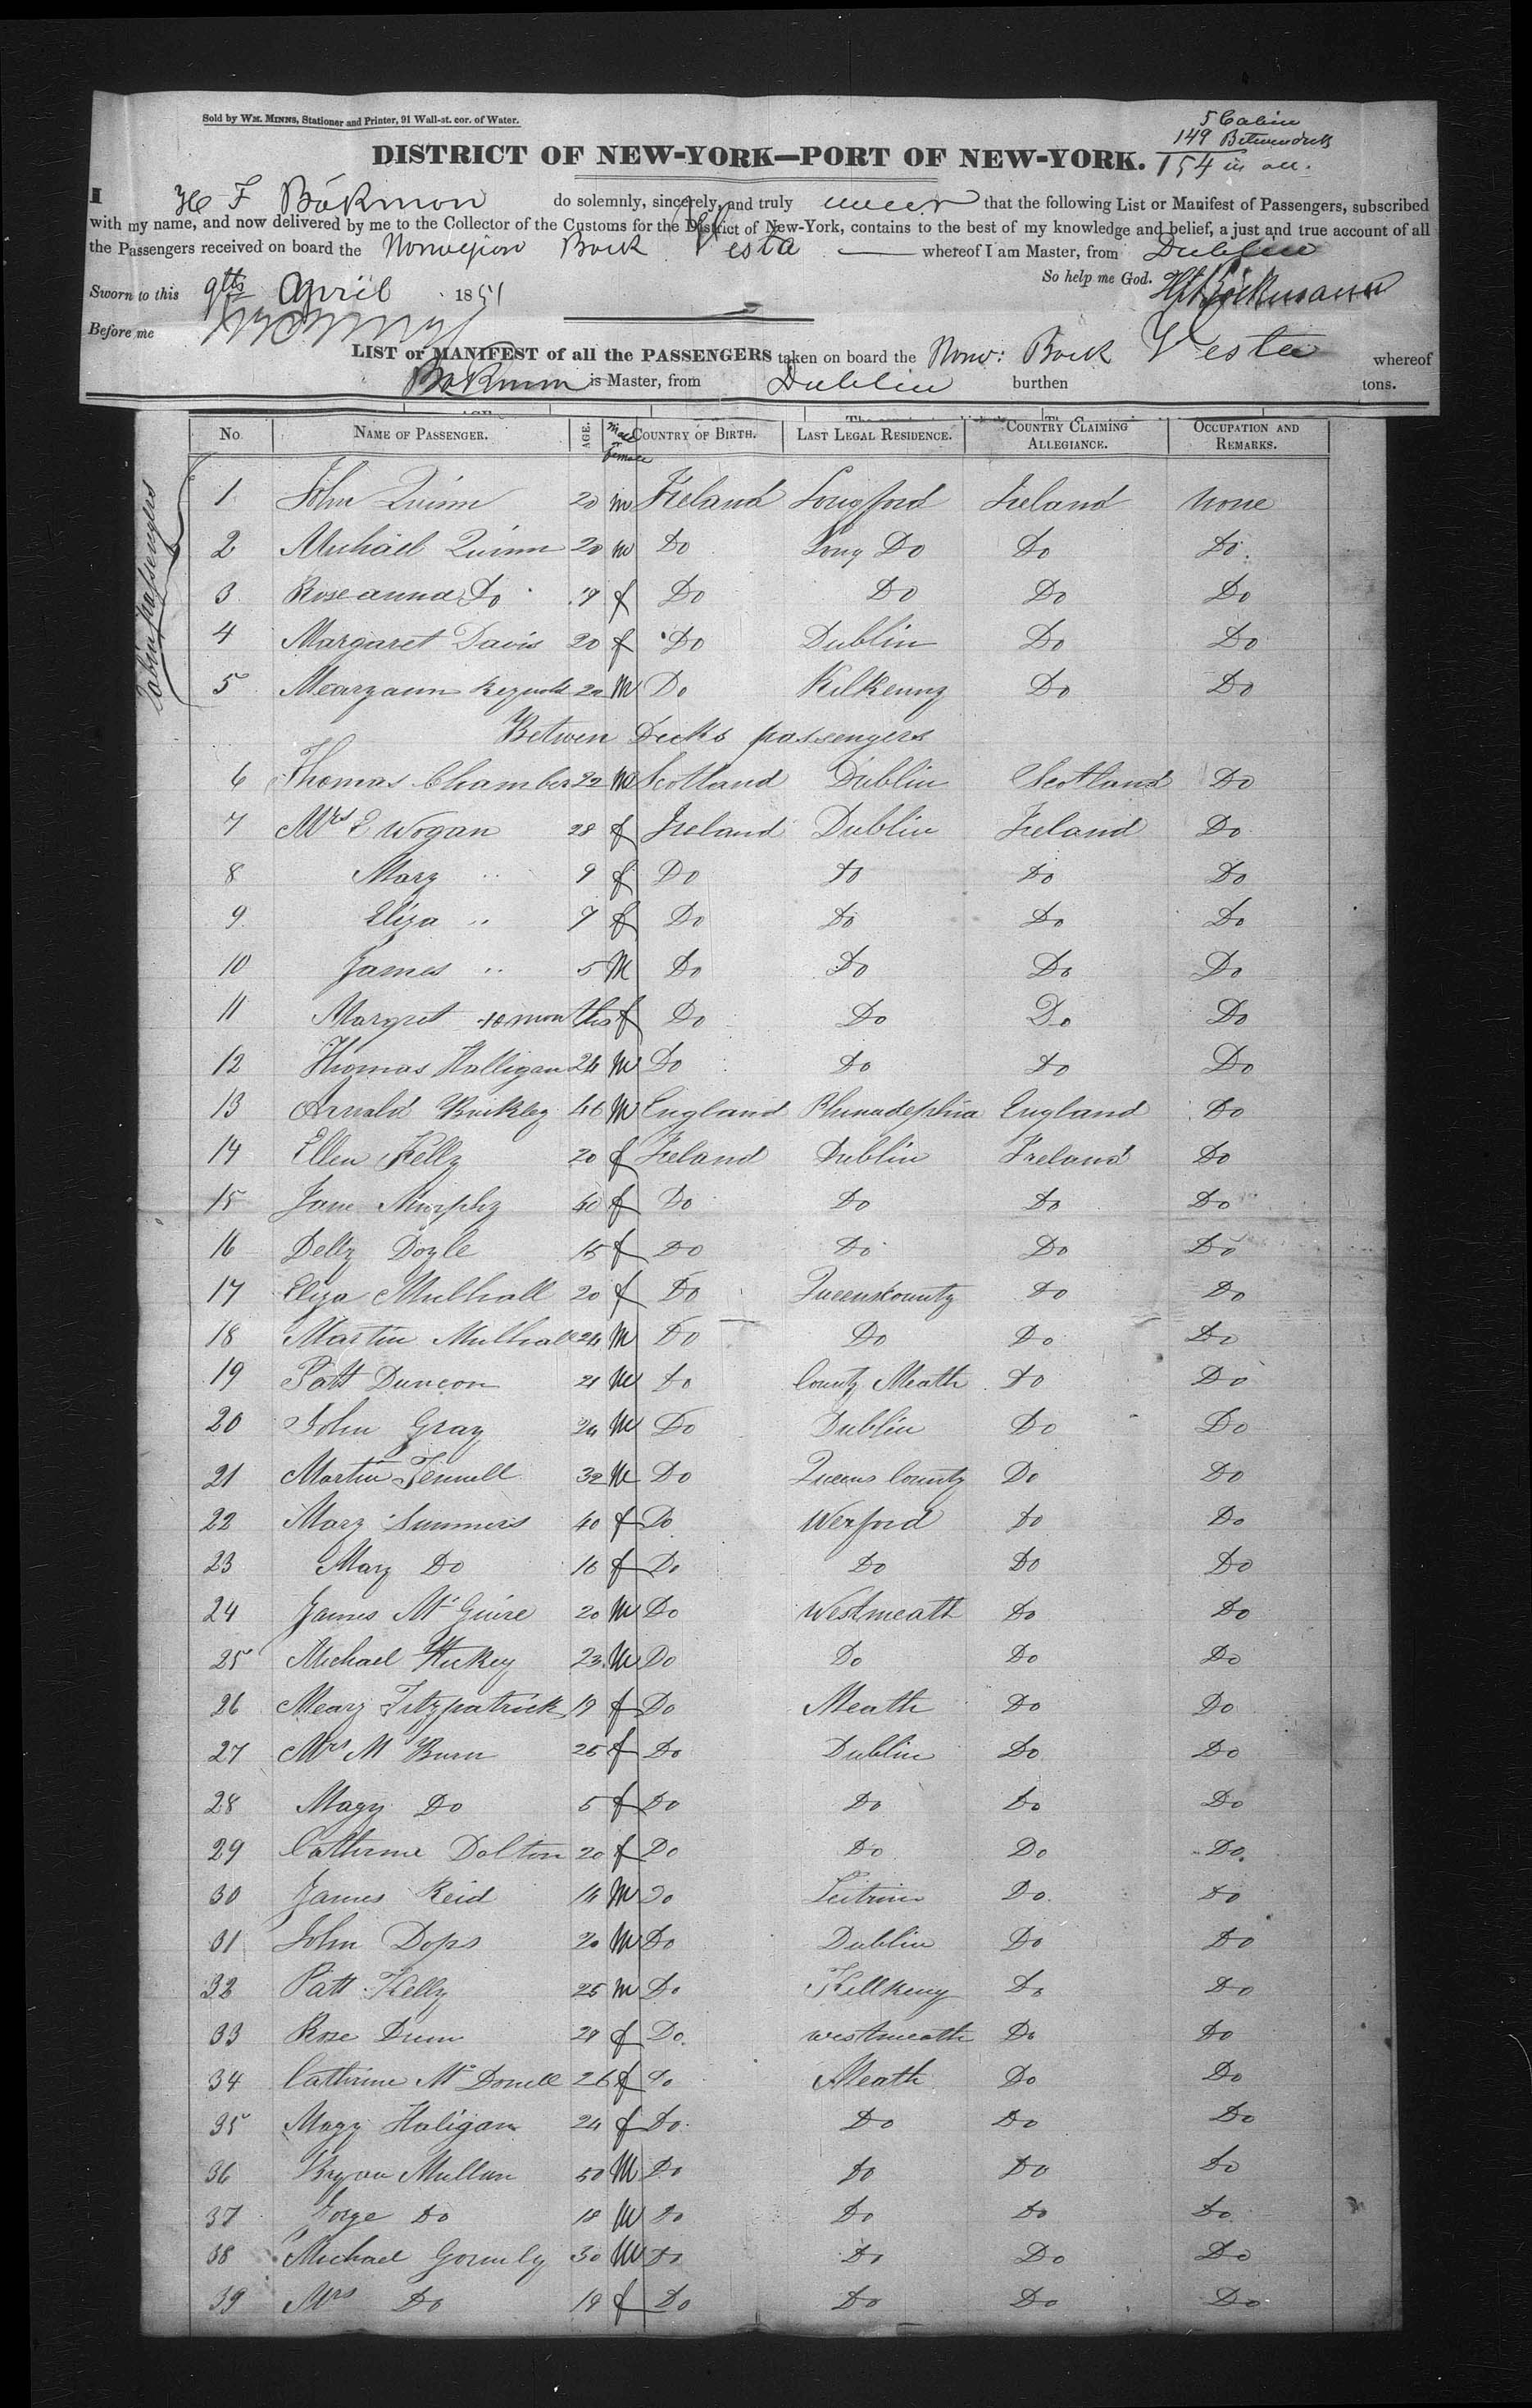 Sold by WM. MINNS, Stationer and Printer, 91 Wall-st. cor. of Water.
5 Cabin
149 Betweendecks
154 in all.
DISTRICT OF NEW-YORK—PORT OF NEW-YORK.
I H F Bökmon do solemnly, sincerely, and truly swear that the following List or Manifest of Passengers, subscribed
with my name, and now delivered by me to the Collector of the Customs for the District of New-York, contains to the best of my knowledge and belief, a just and true account of all
the Passengers received on board the Norwegion Bark Vesta whereof I am Master, from Dublin
So help me God. Böckmann
Sworn to this 9th April 1851
Before me
LIST or MANIFEST of all the PASSENGERS taken on board the Norw: Bark Vesta whereof
Bökmon is Master, from Dublin burthen tons.
No. NAME OF PASSENGER. AGE. Male or female COUNTRY OF BIRTH. LAST LEGAL RESIDENCE. COUNTRY CLAIMING ALLEGIANCE. OCCUPATION AND REMARKS.
Cabin passengers
1 John Quinn 20 m Ireland Longford Ireland None
2 Michael Quinn 20 m Do Long Do Do Do.
3 Roseanna Do f Do Do Do Do
4 Margaret Davis 20 f Do Dublin Do Do
5 Mearyann Reynols 20 M Do Kilkenny Do Do
Betwen Decks passengers
6 Thomas Chamber 22 M Scotland Dublin Scotland Do
7 Mrs E Wogan 28 f Ireland Dublin Ireland Do
8 Mary " 9 f Do Do Do Do
9 Eliza " 7 f Do Do Do Do
10 James " 5 M Do Do Do Do
11 Margret 10 months f Do Do Do Do
12 Thomas Halligan 24 M Do Do Do Do
13 Arnold Buckley 46 M England England Do
14 Ellen Kelly 20 f Ireland Dublin Ireland Do
15 Jane Murphy 40 f Do Do Do Do
16 Delly Doyle 15 f Do Do Do Do
17 Eliza Mulhall 20 f Do Queenscounty Do Do
18 Martin Mulhall 24 M Do Do Do Do
19 Patt Duncon 21 M Do County Meath Do Do
20 John Gray 24 M Do Dublin Do Do
21 Martin Fennell 32 M Do Queens County Do Do
22 Mary Summers 40 f Do Wexford Do Do
23 Mary Do 16 f Do Do Do Do
24 James McGuire 20 M Do Westmeath Do Do
25 Michael Hickey 23 M Do Do Do Do
26 Meary Fitzpatrick 19 f Do Meath Do Do
27 Mrs M Burn 25 f Do Dublin Do Do
28 Magy Do 5 f Do Do Do Do
29 Catherine Dolton 20 f Do Do Do Do.
30 James Reid M Do Leitrim Do Do
31 John Dops 20 M Do Dublin Do Do
32 Patt Kelly 25 M Do Killkeny Do Do
33 Rose Dunn f Do westmeath Do Do
34 Catherine McDonell 26 f Do Meath Do Do
35 Magy Haligan 24 f Do Do Do Do
36 Bryan Mullan 50 M Do Do Do Do
37 Jorge Do 18 M Do Do Do Do
38 Michael Gormly 30 M Do Do Do Do
39 Mrs Do 19 f Do Do Do Do